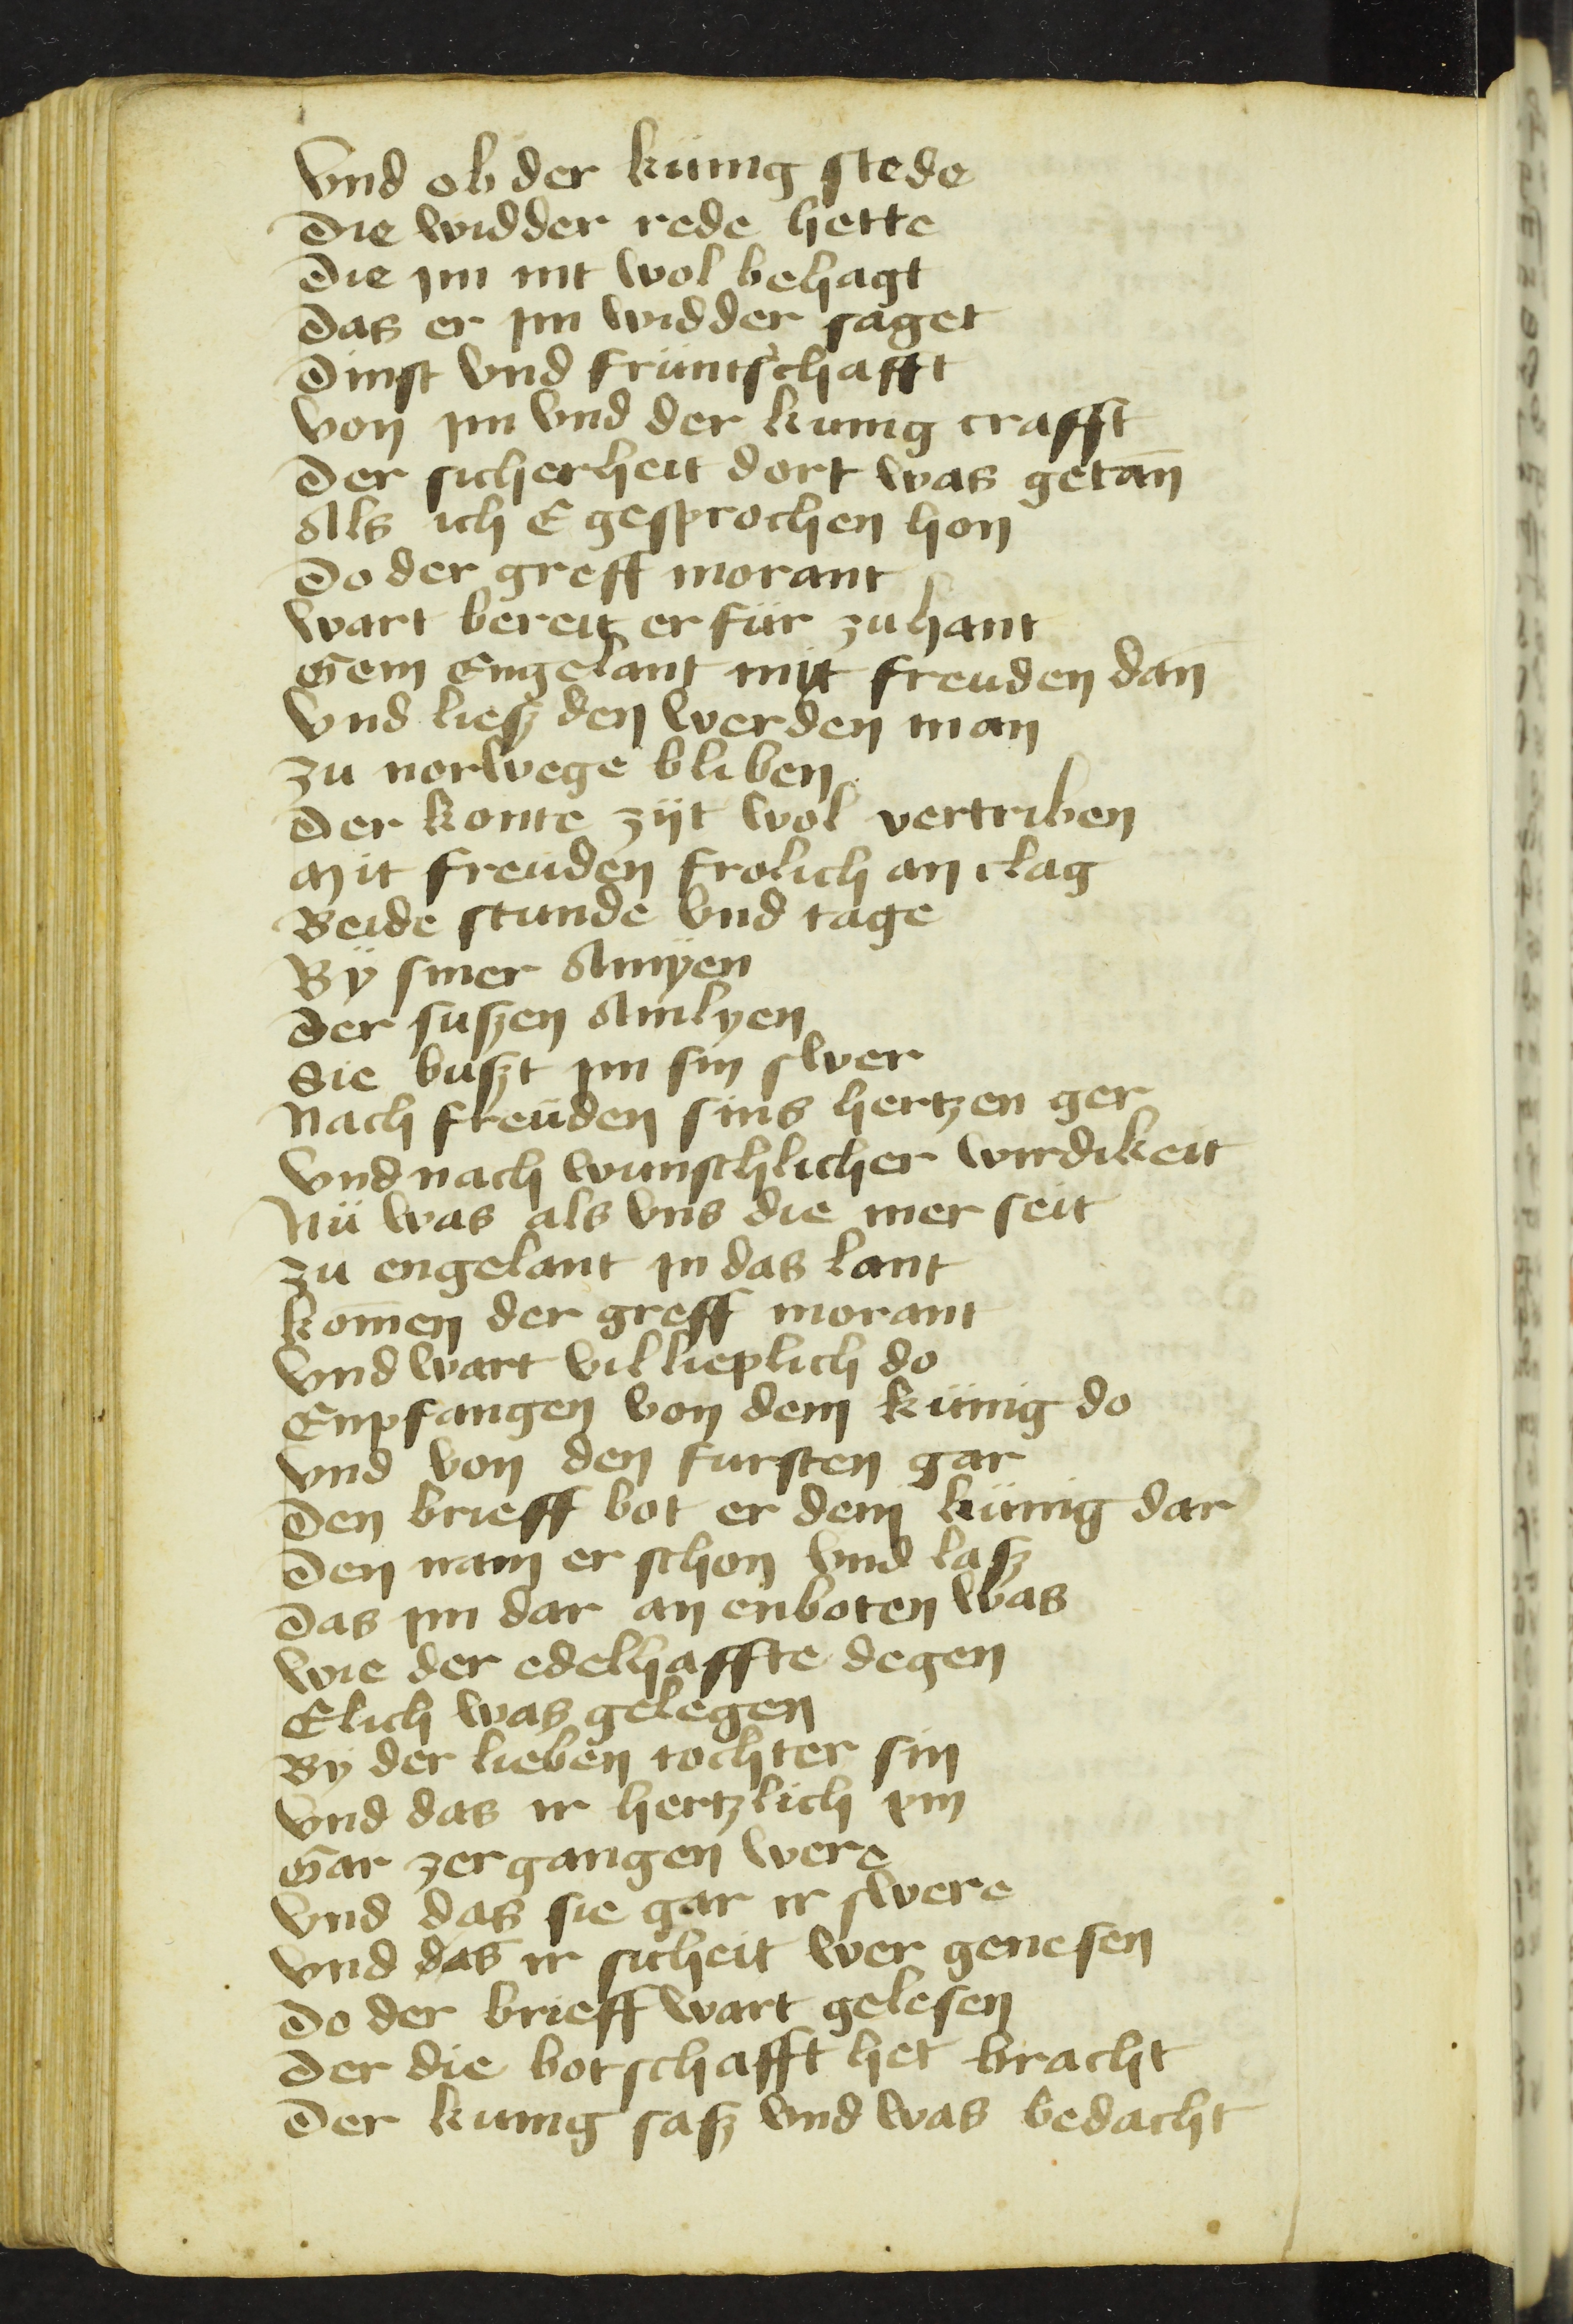 Vnd ob der künig stede
Die widder rede hette
Die ym nit wol behagt
Das er ym widder saget
Dinst vnd früntschafft
Von ym vnd der kunig crafft
Der sicherheit dort was getan̄
Als ich E gesprochen hon
Do der greff morant
Wart bereit er für zu hant
Gein Engelant mit freuden dan̄
Vnd liesz den werden man
Zu norwege bliben
Der konte zijt wol vertriben
Mit freüden frolich an clag
Beide stunde vnd tage
By siner Amÿen
Der suszen Amlyen
Sie buszt ym sin swer
Nach freüden sins hertzen ger
Vnd nach wunschlicher wirdikeit
Nü was als vns die mer seit
Zu engelant yn das lant
kom̄en der greff morant
Vnd wart vil lieplich do
Enpfangen von dem künig do
Vnd von den fursten gar
Den brieff bot er dem künig dar
Den nam er schon vnd lasz
Das ym dar an enboten was
Wie der edelhaffte degen
Elich was gelegen
By der lieben tochter sin
Vnd das ir hertzlich pin
Gar zergangen were
Vnd das sie gar ir swere
Vnd das ir sicheit wer genesen
Do der brieff wart gelesen
Der die botschafft het bracht
Der kunig sasz vnd was bedacht